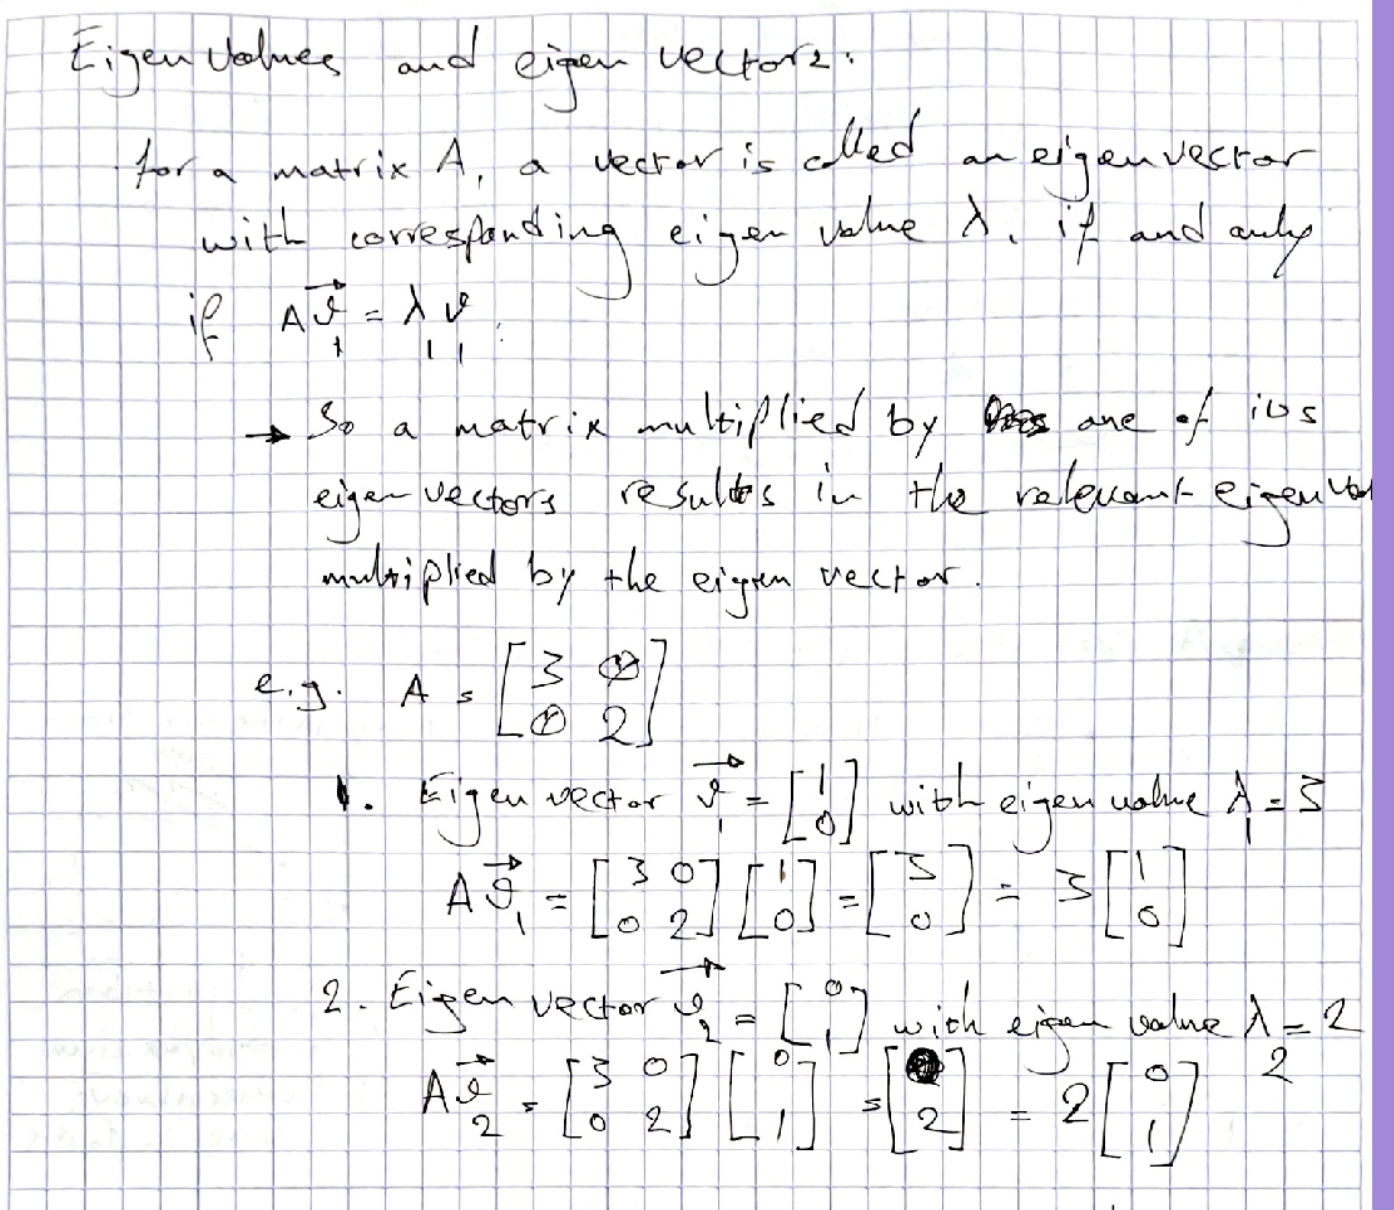 Eigen values and eigen vectors:
for a matrix A, a vector is called an eigenvector
with corresponding eigen value λ, if and only
if A v⃗₁ = λ₁ v₁.
→ So a matrix multiplied by one of its
eigen vectors results in the relevant eigenval
multiplied by the eigen vector.
e.g. A = [3 0; 0 2]
1. Eigen vector v⃗₁ = [1; 0] with eigen value λ₁ = 3
A v⃗₁ = [3 0; 0 2] [1; 0] = [3; 0] = 3 [1; 0]
2. Eigen vector v⃗₂ = [0; 1] with eigen value λ₂ = 2
A v⃗₂ = [3 0; 0 2] [0; 1] = [ ; 2] = 2 [0; 1]